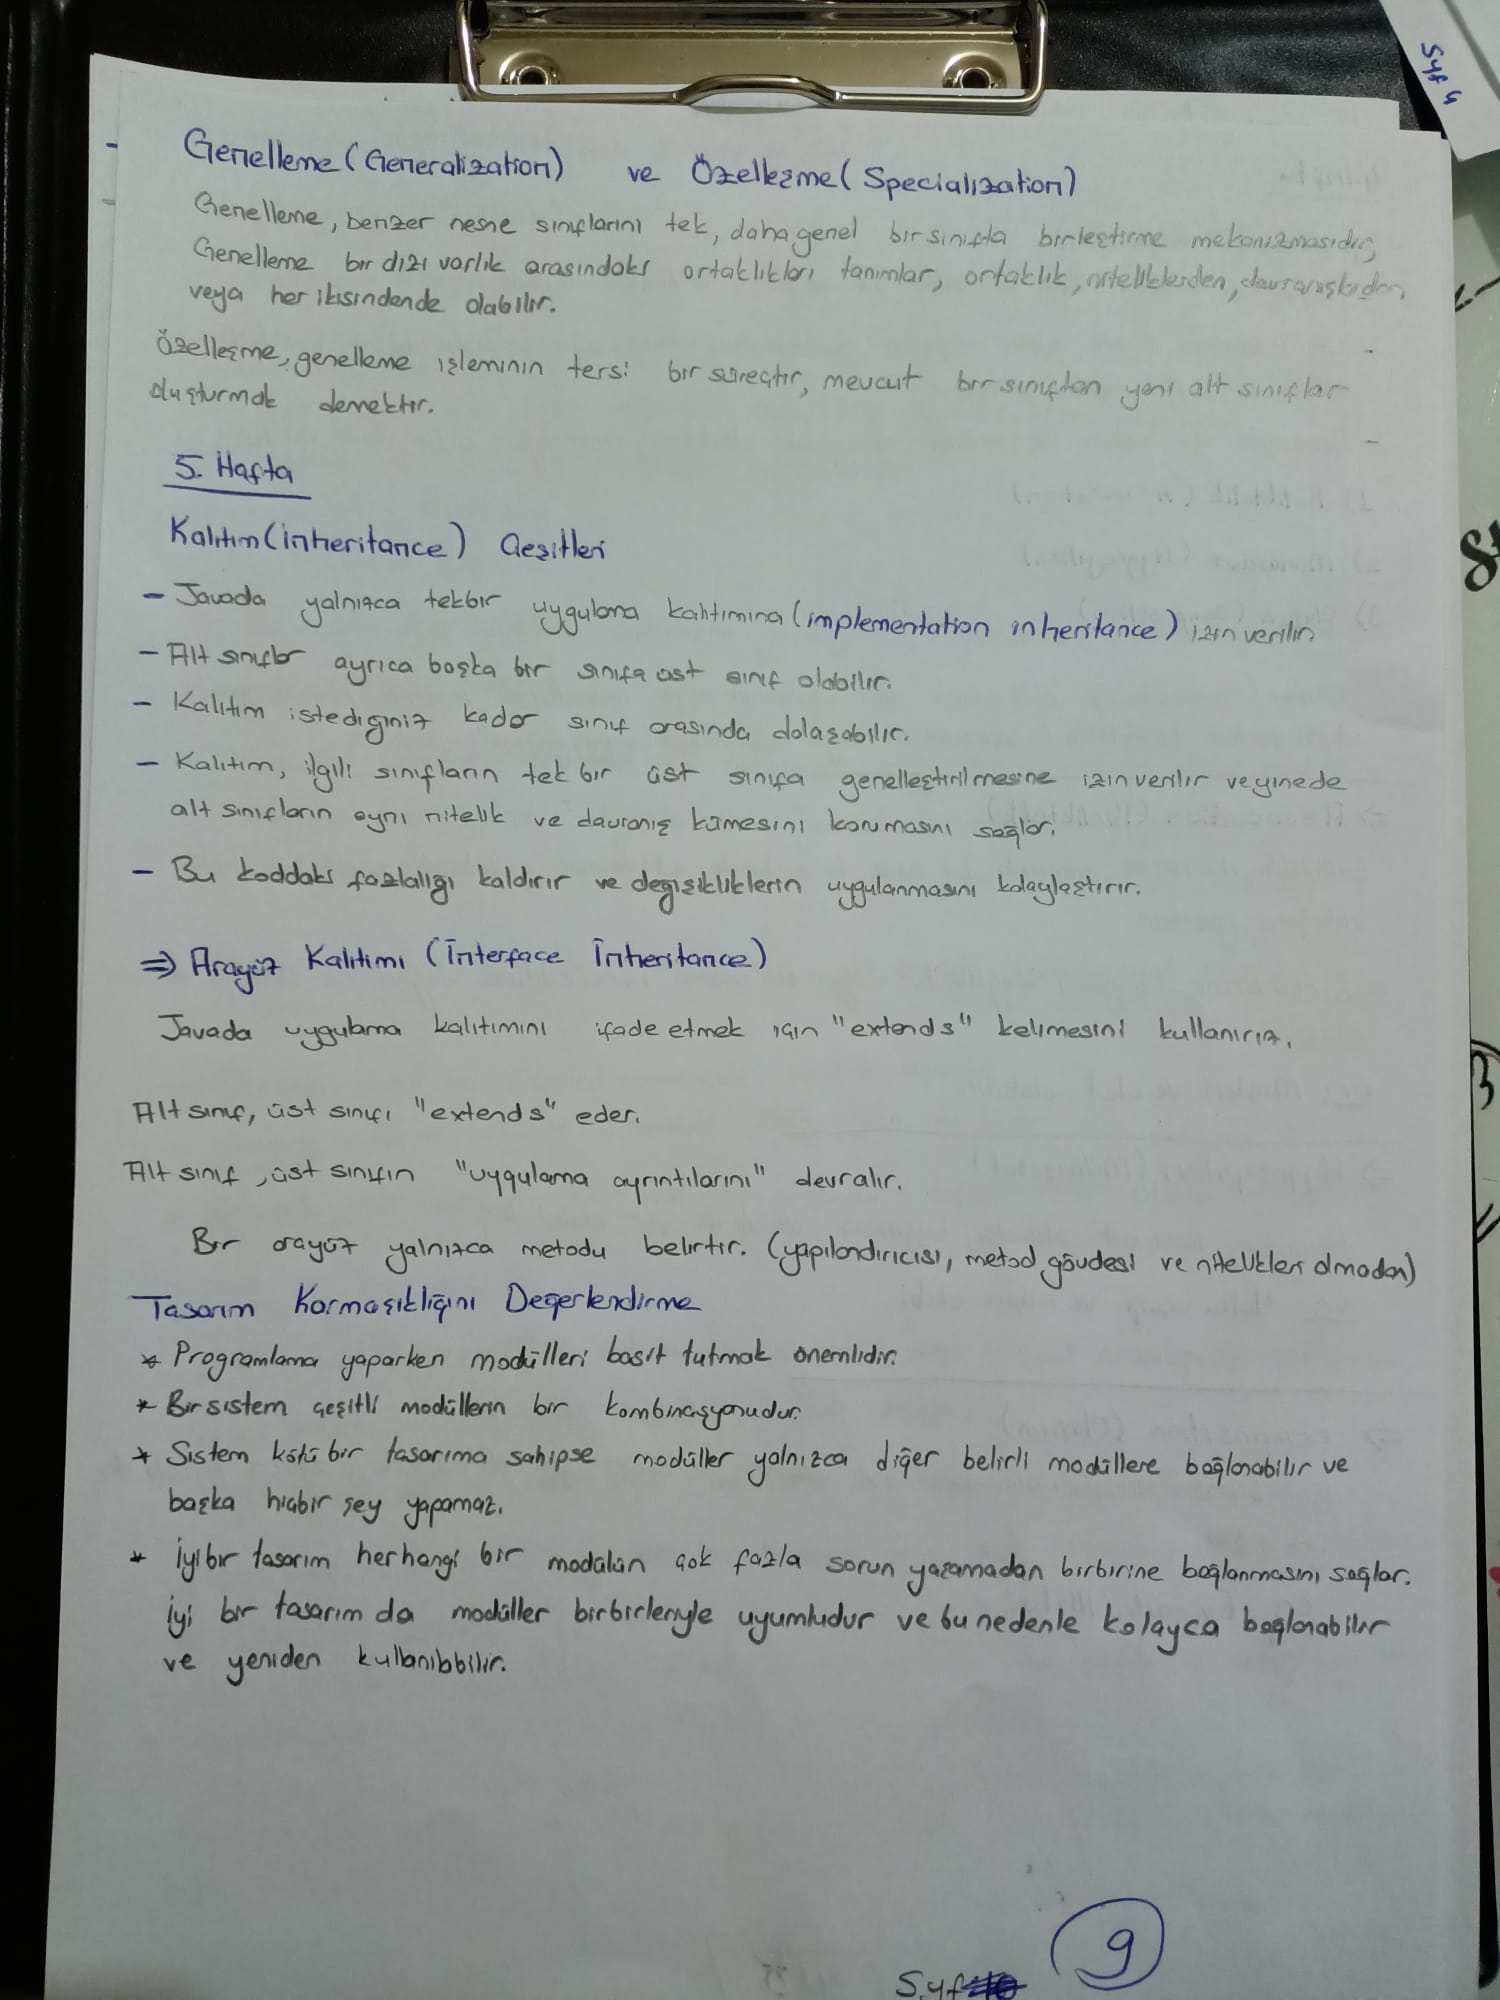 Syf 4
Genelleme (Generalization) ve Özelleşme (Specialization)
Genelleme, benzer nesne sınıflarını tek, daha genel bir sınıfta birleştirme mekanizmasıdır,
Genelleme bir dizi varlık arasındaki ortaklıkları tanımlar, ortaklık, niteliklerden, davranışlardan
veya her ikisindende olabilir.
Özelleşme, genelleme işleminin tersi bir süreçtir, mevcut bir sınıftan yeni alt sınıflar
oluşturmak demektir.
5. Hafta
Kalıtım (inheritance) Çeşitleri
- Javada yalnızca tekbir uygulama kalıtımına (implementation inheritance) izin verilir
- Alt sınıflar ayrıca başka bir sınıfa üst sınıf olabilir.
- Kalıtım istediğiniz kadar sınıf arasında dolaşabilir.
- Kalıtım, ilgili sınıfların tek bir üst sınıfa genelleştirilmesine izin verilir ve yinede
alt sınıfların aynı nitelik ve davranış kümesini korumasını sağlar.
- Bu koddaki fazlalığı kaldırır ve değişikliklerin uygulanmasını kolaylaştırır.
⇒ Arayüz Kalıtımı (İnterface İnheritance)
Javada uygulama kalıtımını ifade etmek için "extends" kelimesini kullanırız.
Alt sınıf, üst sınıfı "extends" eder.
Alt sınıf, üst sınıfın "uygulama ayrıntılarını" devralır.
Bir arayüz yalnızca metodu belirtir. (yapılandırıcısı, metod gövdesi ve nitelikleri olmadan)
Tasarım Karmaşıklığını Değerlendirme
* Programlama yaparken modülleri basit tutmak önemlidir.
* Bir sistem çeşitli modüllerin bir kombinasyonudur.
* Sistem kötü bir tasarıma sahipse modüller yalnızca diğer belirli modüllere bağlanabilir ve
başka hiçbir şey yapamaz.
* İyi bir tasarım herhangi bir modülün çok fazla sorun yaşamadan birbirine bağlanmasını sağlar.
İyi bir tasarım da modüller birbirleriyle uyumludur ve bu nedenle kolayca bağlanabilir
ve yeniden kullanılabilir.
Syf 9